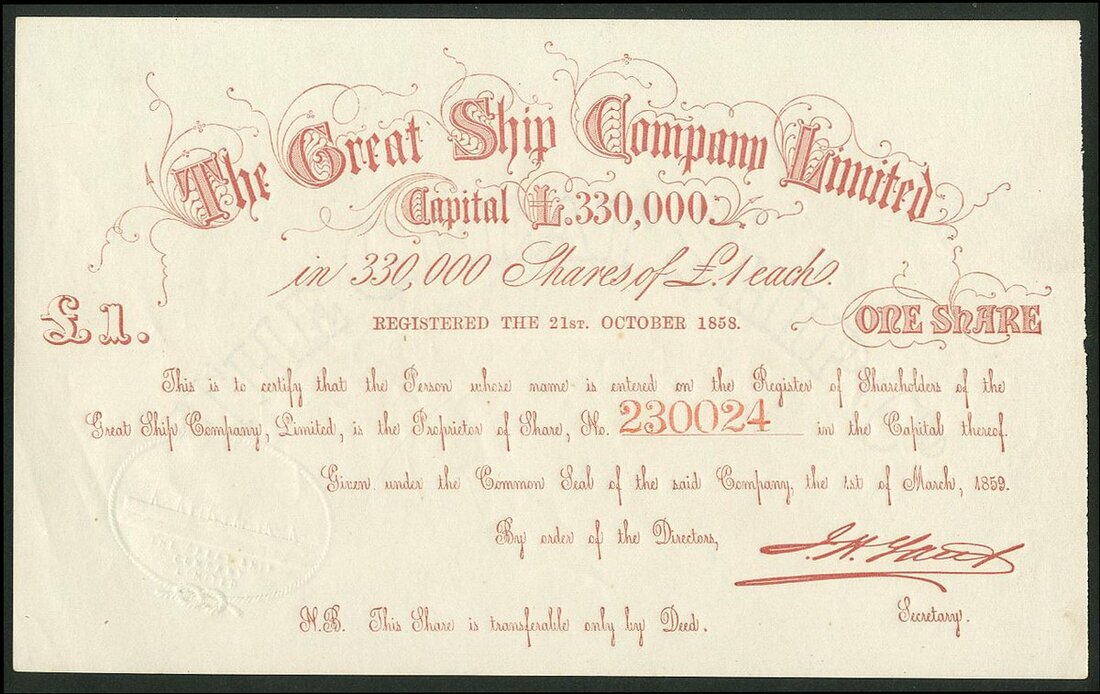 The Great Ship Company Limited
Capital £.330,000.
in 330,000 Shares of £.1 each.
£1.
REGISTERED THE 21ST. OCTOBER 1858.
ONE SHARE
This is to certify that the Person whose name is entered on the Register of Shareholders of the
Great Ship Company, Limited, is the Proprietor of Share, No. 230024 in the Capital thereof.
Given under the Common Seal of the said Company, the 1st of March, 1859.
By order of the Directors,
Secretary.
N.B. This Share is transferable only by Deed.